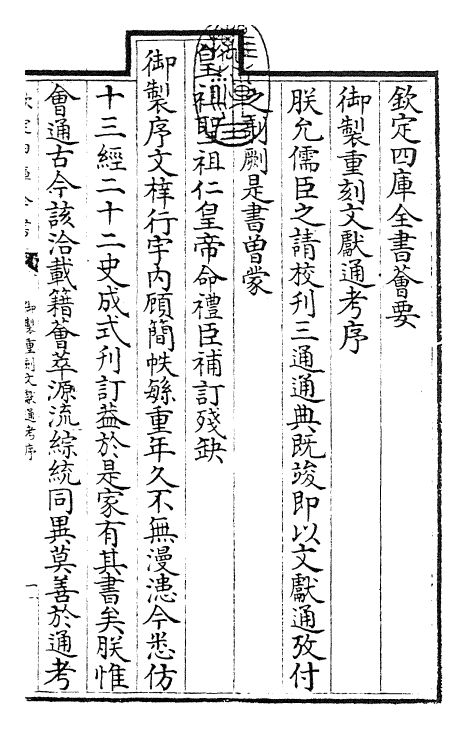 欽定四庫全書薈要
御製重刻文獻通考序
朕允儒臣之請校刊三通通典既竣即以文獻通攷付
之剞劂是書曽蒙
皇祖聖祖仁皇帝命禮臣補訂殘缺
御製序文梓行宇内顧簡帙繇重年久不無漫漶今悉仿
十三經二十二史成式刊訂益於是家有其書矣朕惟
㑹通古今該洽載籍薈萃源流綜統同異莫善於通考
御製重刻文獻通考序
一